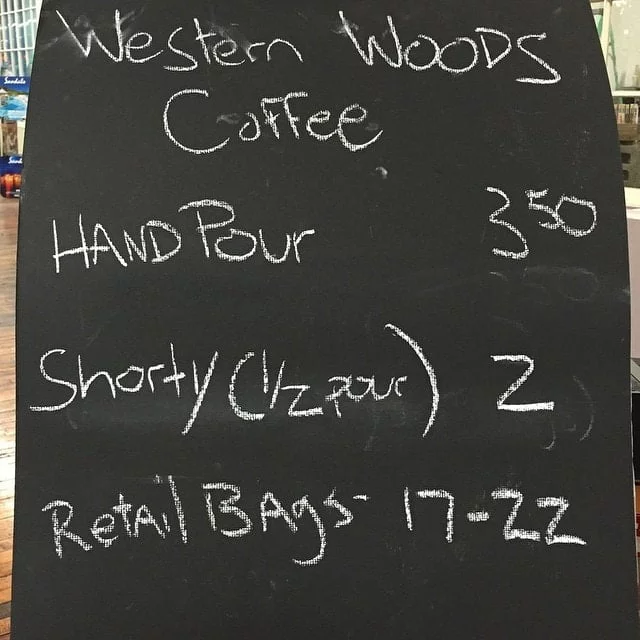 Western Woods
Coffee
HAND Pour 3 50
Shorty (1/2 pour) 2
Retail BAgs- 17-22